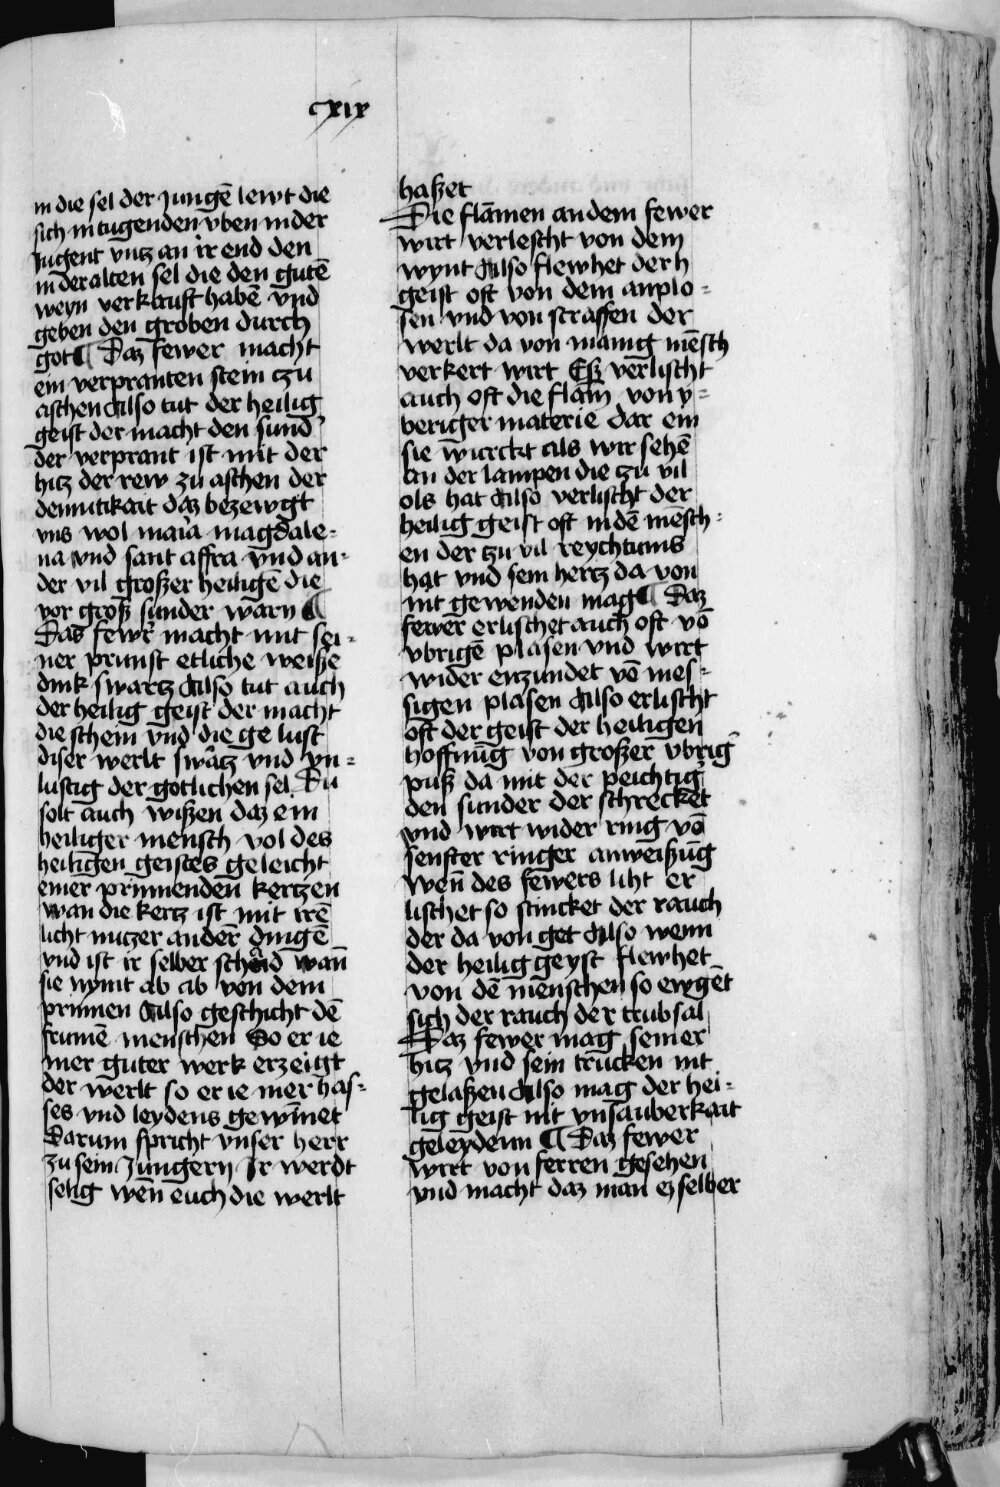 cxix
in die sel der Jungē lewt die
sich in tugenden vben in der
Jugent vntz an ir end den
in der alten sel die den gutē
weyn verkauft habē vnd
geben den groben durch
got ¶ Daz fewer macht
ein verpranten stein tzu
aschen Also tut der heilig
geist der macht den sund
der verprant ist mit der
hitz der rew zu aschen der
demutikait daz bezewgt
vns wol maria magdale-
na vnd sant affra vnd an-
der vil großer heiligē die
vor groß sunder warn ¶
Das fewr macht mit sei-
ner prunst etliche weiße
dink swartz Also tut auch
der heilig geist der macht
die schein vnd die gelust
diser werlt swartz vnd vn-
lustig der gotlichen sel. Du
solt auch wißen daz ein
heiliger mensch vol des
heiligen geistes geleicht
einer prinnenden kertzen
wan die kertz ist mit irē
licht nutzer andern dingē
vnd ist ir selber schad wan
sie nymt ab ab von dem
prinnen Also geschicht dē
frumē menschen So er ie
mer guter werk erzeigt
der werlt so er ie mer has-
ses vnd leydens gewinnet
Darum spricht vnser herr
zu sein Jungern Ir werdt
selig wēn euch die werlt
haßet
Die flamen an dem fewer
wirt verlescht von dem
wynt Also flewhet der h
geist oft von dem anplo-
sen vnd von straffen der
werlt da von manig mēsch
verkert wirt Eß verlischt
auch oft die flam von v-
beriger materie dar ein
sie wurckt als wir sehē
an der lampen die zu vil
ols hat Also verlischt der
heilig geist oft in dē mēsch-
en der tzu vil reychtums
hat vnd sein hertz da von
nit gewenden mag ¶ Daz
fewer erlischet auch oft vō
vbrigē plasen vnd wirt
wider enzundet vō mes-
sigen plasen Also erlischt
oft der geist der heiligen
hoffnūg von großer vbrig
puß da mit der peichtig
den sunder der schrecket
vnd wirt wider ring vō
senfter ringer anweißūg
wen̄ des fewers liht er
lischet so stincket der rauch
der da von get Also wenn
der heilig geyst flewhet
von dē menschen so eygēt
sich der rauch der trubsal
Daz fewer mag seiner
hitz vnd sein trucken nit
gelaßen Also mag der hei-
lig geist nit vnsauberkait
geleydenn ¶ Daz fewer
wirt von ferren gesehen
vnd macht daz man ez selber